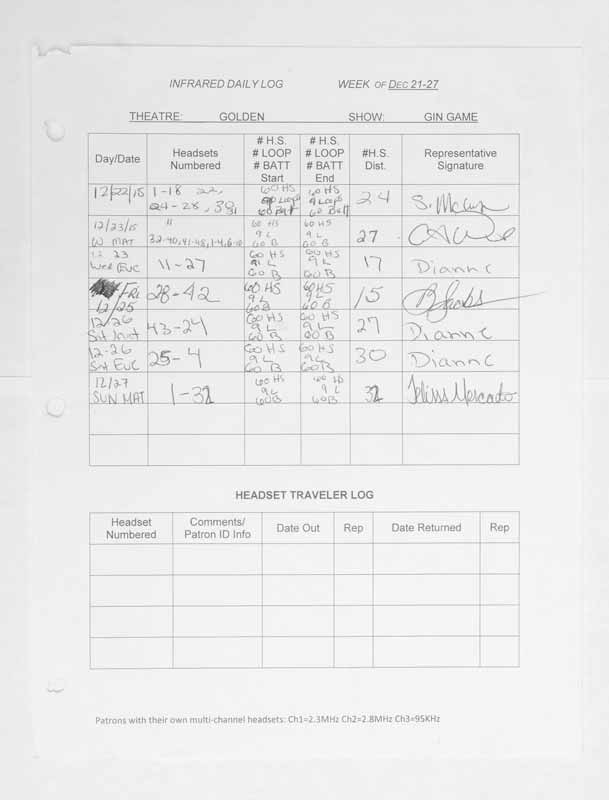 INFRARED DAILY LOG WEEK OF DEC 21-27
THEATRE: GOLDEN SHOW: GIN GAME
Day/Date Headsets Numbered # H.S. # LOOP # BATT Start # H.S. # LOOP # BATT End #H.S. Dist. Representative Signature
12/22/15 1-18 22, 24-28, 60 HS 9 Loops 60 Batt 60 HS 9 Loops 60 Batt 24
12/23/15 W MAT " 32-40, 41-48, 1-4, 6-10 60 HS 9 L 60 B 60 HS 9 L 60 B 27
12 23 Wed EVE 11-27 60 HS 9 L 60 B 60 HS 9 L 60 B 17 Dianne
FRI 12/25 28-42 60 HS 9 L 60 B 60 HS 9 L 60 B 15 B Jacobs
12/26 Sat mat 43-24 60 HS 9 L 60 B 60 HS 9 L 60 B 27 Dianne
12-26 Sat EVE 25-4 60 HS 9 L 60 B 60 HS 9 L 60 B 30 Dianne
12/27 SUN MAT 1-32 60 HS 9 L 60 B 60 HS 9 L 60 B 32 Mercado
HEADSET TRAVELER LOG
Headset Numbered Comments/ Patron ID Info Date Out Rep Date Returned Rep
Patrons with their own multi-channel headsets: Ch1=2.3MHz Ch2=2.8MHz Ch3=95KHz